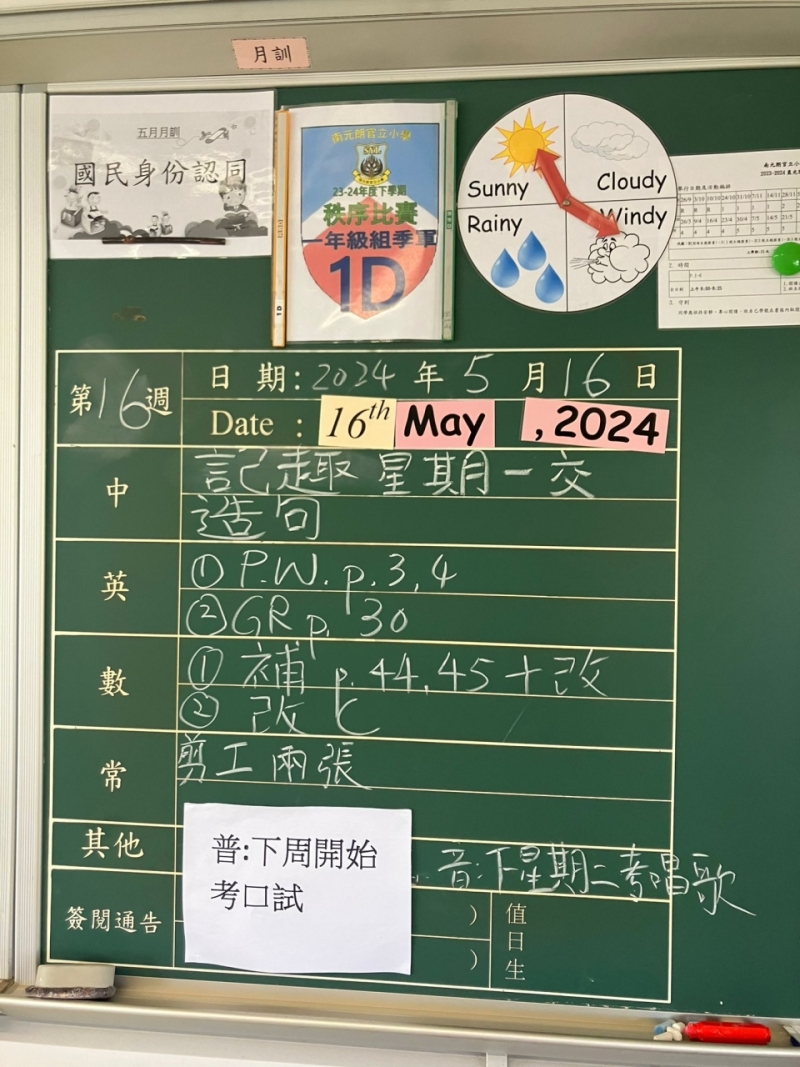 月訓
五月月訓
國民身份認同
南元朗官立小學
23-24年度下學期
秩序比賽
一年級組季軍
1D
1D
Sunny
Cloudy
Rainy
Windy
南元朗官立小
2023-2024
2. 時間
3. 守則
第16週
日期:2024年5月16日
Date : 16th May , 2024
中
記趣星期一交
造句
英
① P.W. p.3,4
② GR p. 30
數
① 補 p.44,45+改
② 改 C
常
剪工兩張
其他
普:下周開始
考口試
音:下星期二考唱歌
簽閱通告
)
)
值日生